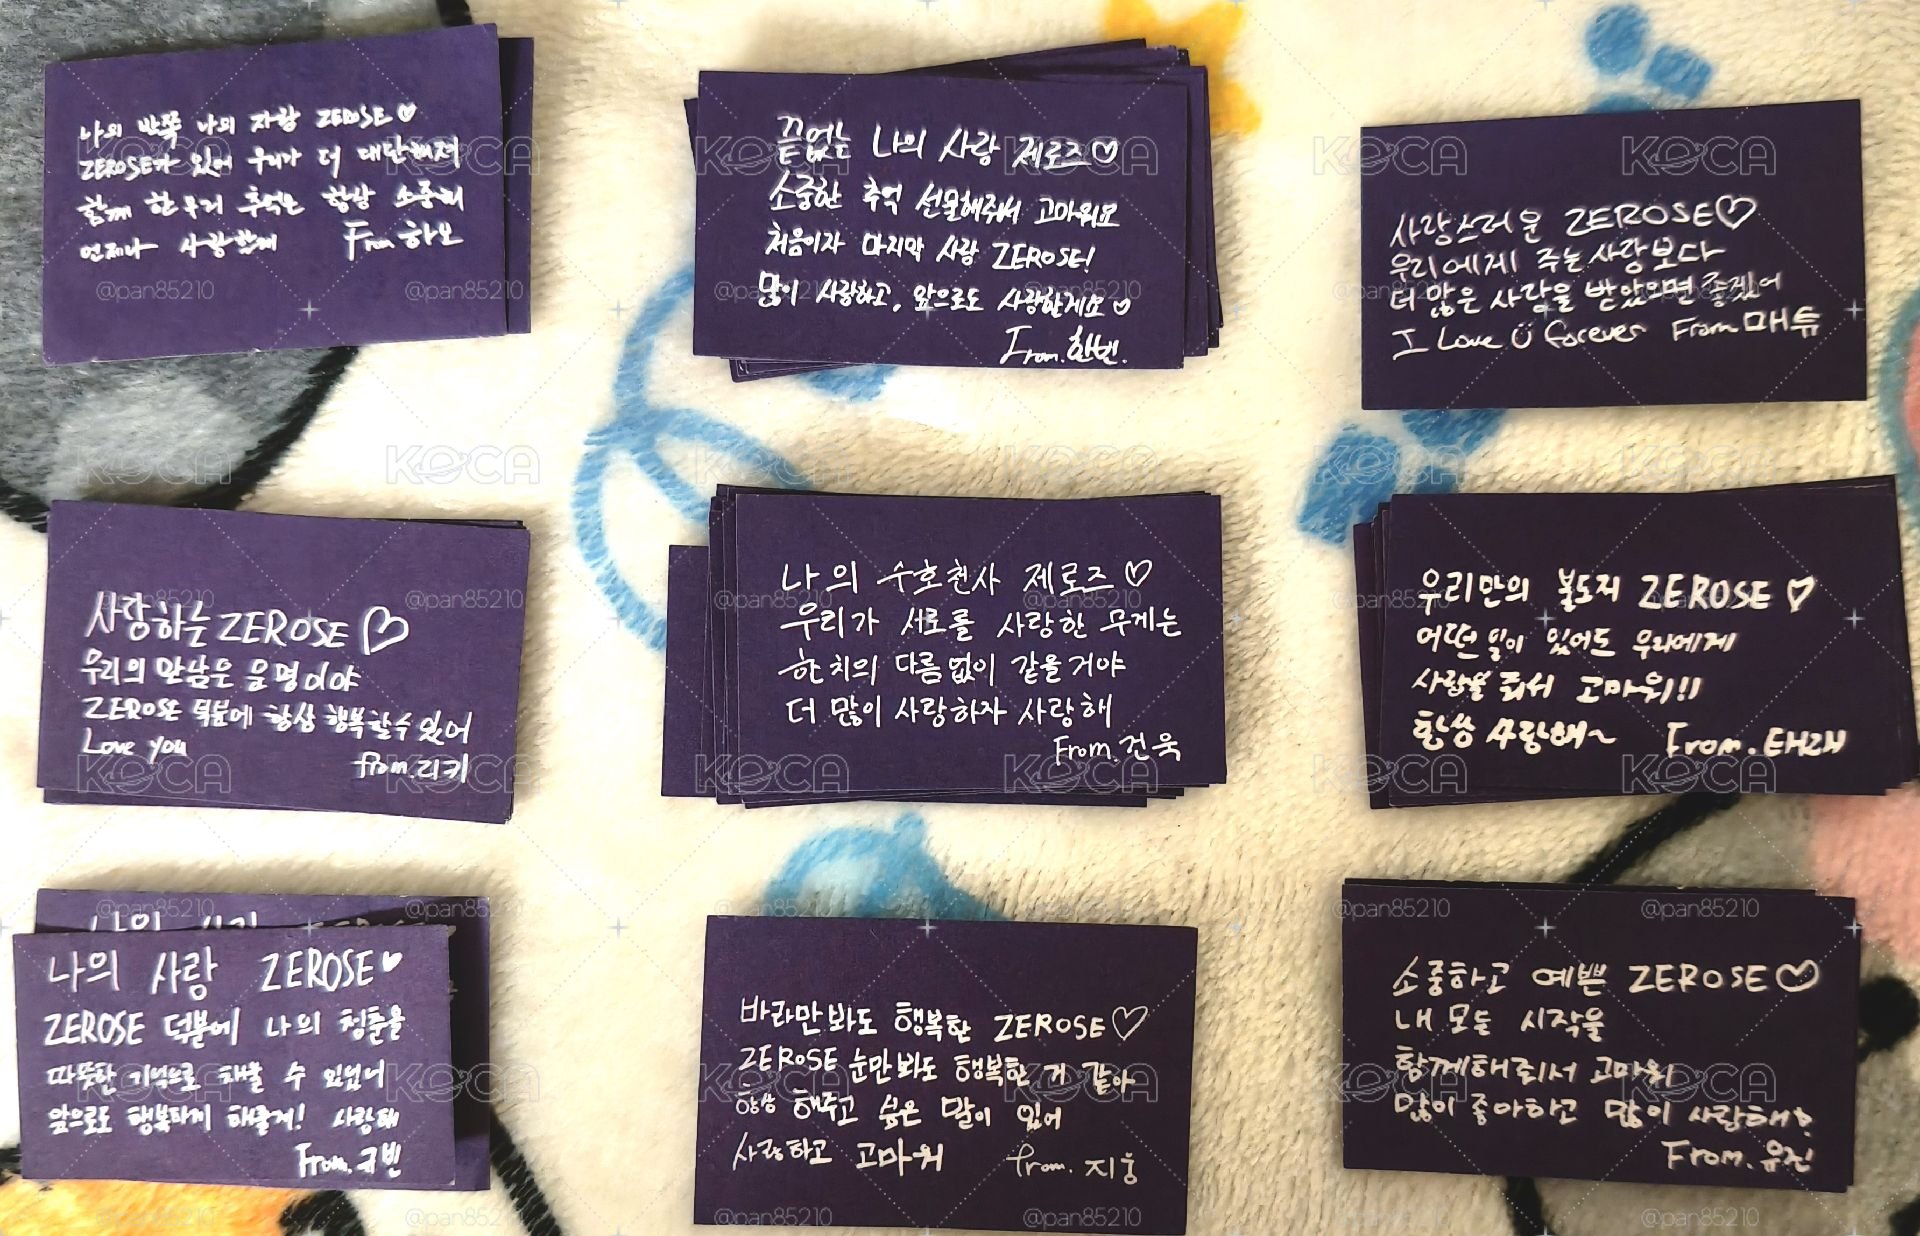 나의 반쪽 나의 자랑 ZEROSE♡
ZEROSE가 있어 우리가 더 대단해져
함께 한 우리 추억은 항상 소중해
언제나 사랑할게 From 하오
끝없는 나의 사랑 제로즈♡
소중한 추억 선물해줘서 고마워요
처음이자 마지막 사랑 ZEROSE!
많이 사랑하고, 앞으로도 사랑할게요♡
From. 한빈.
사랑스러운 ZEROSE♡
우리에게 주는 사랑보다
더 많은 사랑을 받았으면 좋겠어
I Love Ü forever From 매튜
사랑하는 ZEROSE♡
우리의 만남은 운명이야
ZEROSE 덕분에 항상 행복할 수 있어
Love you
from. 리키
나의 수호천사 제로즈♡
우리가 서로를 사랑한 무게는
한 치의 다름없이 같을거야
더 많이 사랑하자 사랑해
From. 건욱
우리만의 불도저 ZEROSE♡
어떤 일이 있어도 우리에게
사랑을 줘서 고마워!!
항상 사랑해~ From. 태래
나의
나의 사랑 ZEROSE♥
ZEROSE 덕분에 나의 청춘을
따뜻한 기억으로 채울 수 있었어
앞으로도 행복하게 해줄게! 사랑해
From. 규빈
바라만 봐도 행복한 ZEROSE♡
ZEROSE 눈만 봐도 행복한 거 같아
항상 해주고 싶은 말이 있어
사랑하고 고마워 from. 지웅
소중하고 예쁜 ZEROSE♡
내 모든 시작을
함께해줘서 고마워
많이 좋아하고 많이 사랑해
From. 유진
KOCA
@pan85210